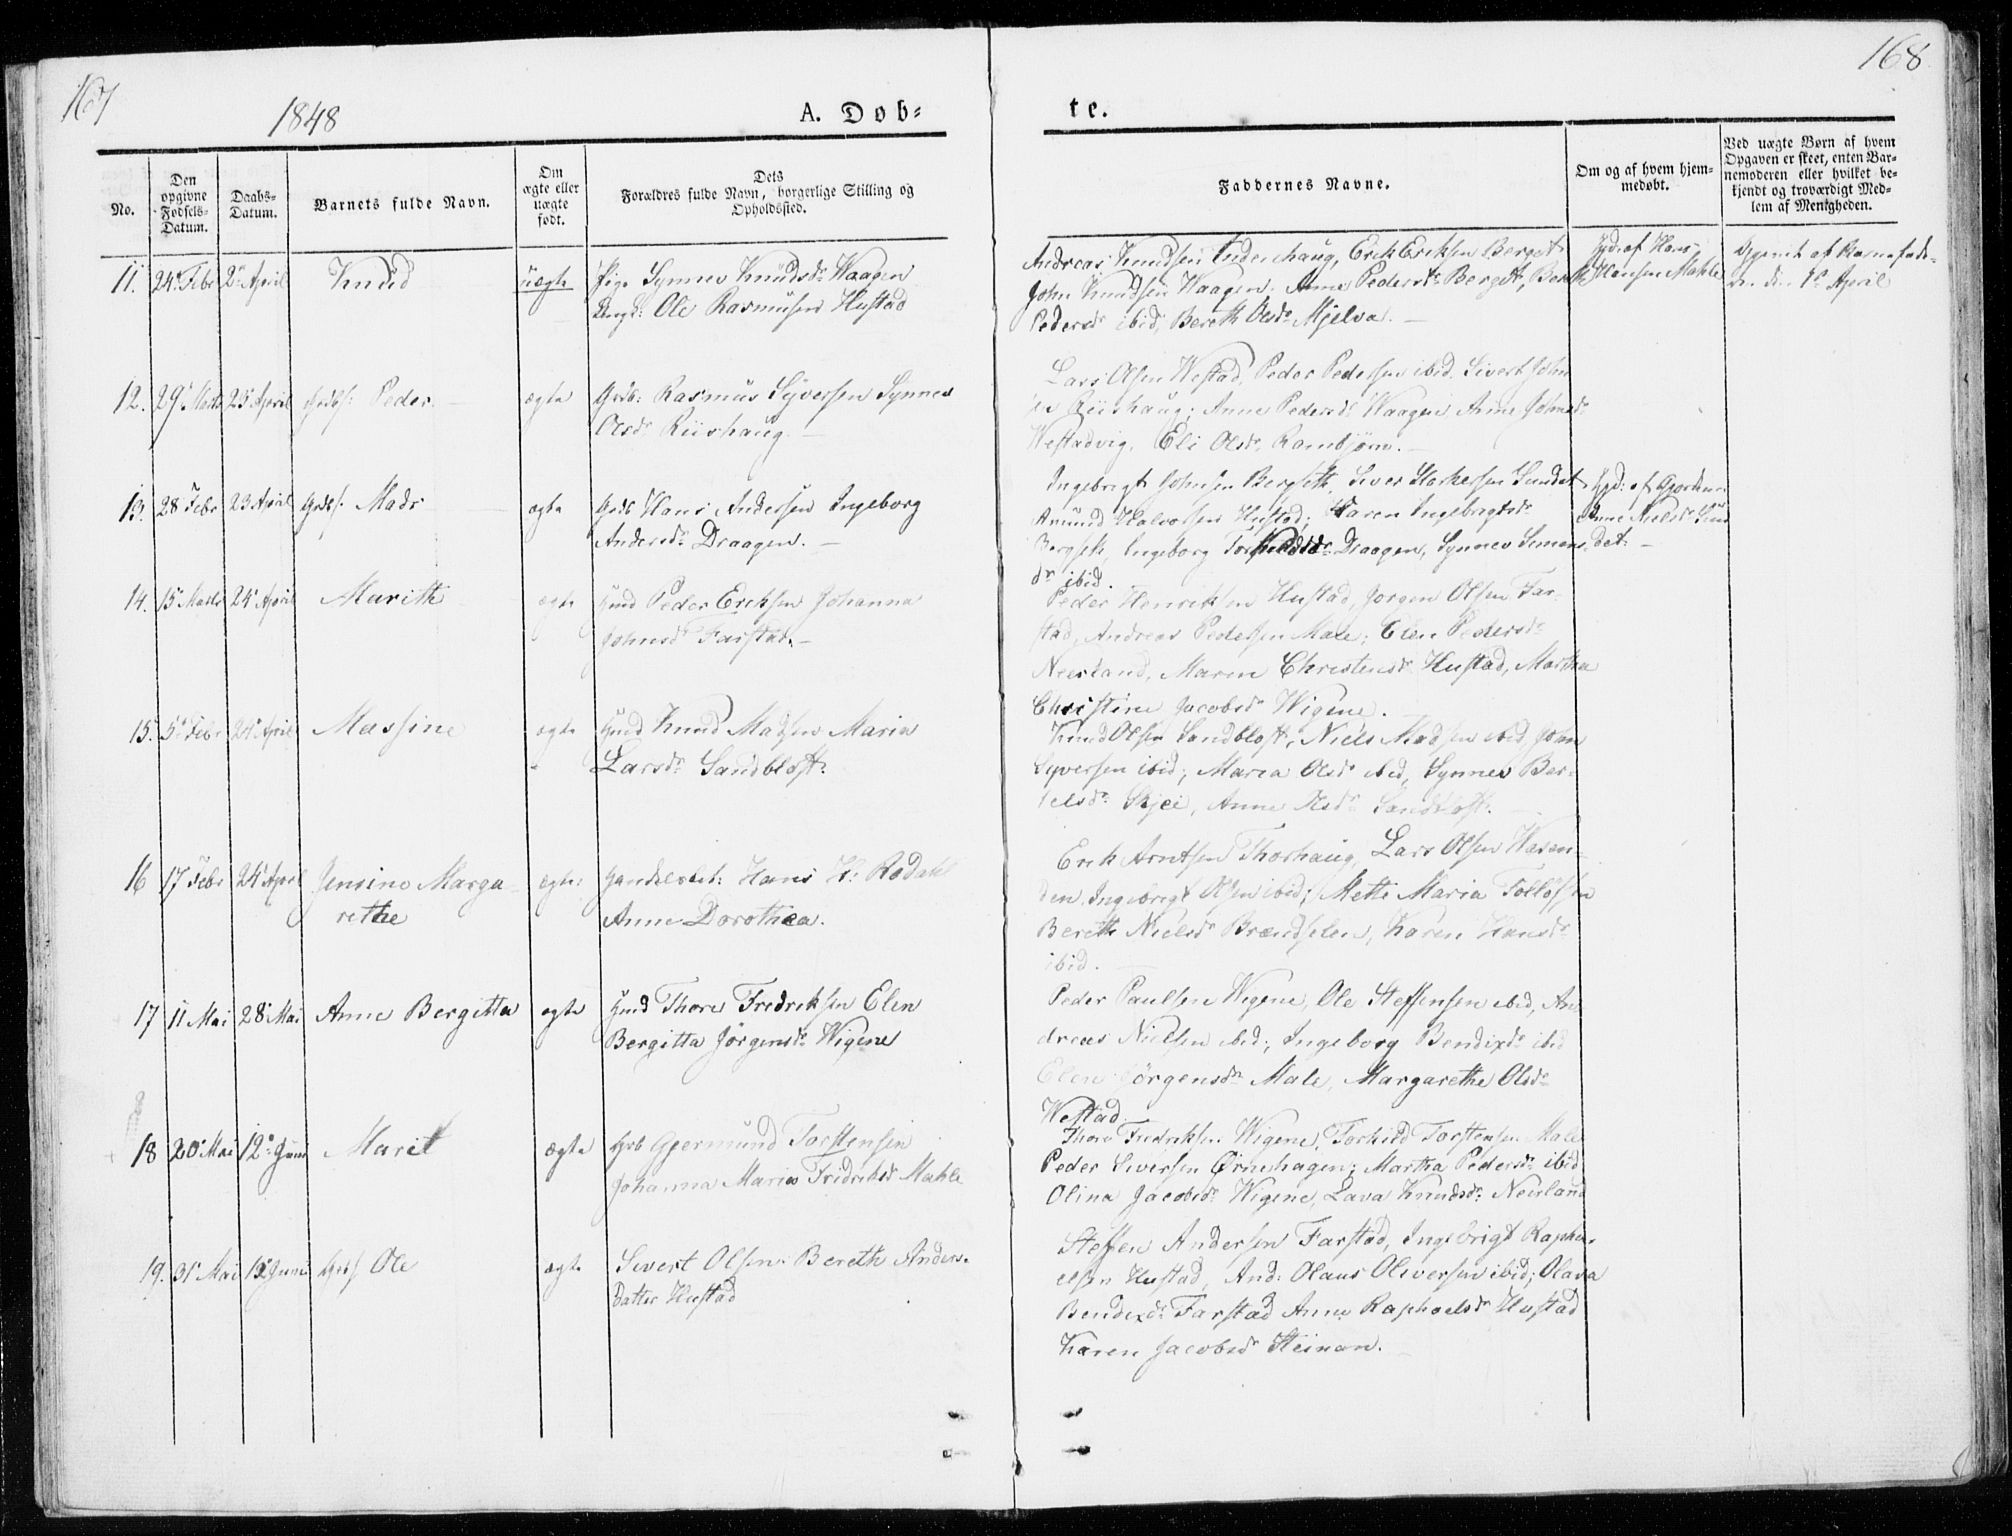 167
168
1848
A. Døb-
te.
No.
Den opgivne Fødsels-Datum.
Daabs-Datum.
Barnets fulde Navn.
Om ægte eller uægte født.
Dets Forældres fulde Navn, borgerlige Stilling og Opholdssted.
Faddernes Navne.
Om og af hvem hjemmedøbt.
Ved uægte Børn af hvem Opgaven er skeet, enten Barnemoderen eller hvilket bekjendt og troværdigt Medlem af Menigheden.
11. 24 Febr 2 April Knud uægte Pige Synnev Knudsdr Waagen
Ungk: Ole Rasmusen Hustad
Andreas Knudsen Endenhaug, Erik Eriksen Berget
John Knudsen Waagen. Anne Pedersdr Berget, Bereth
Pedersdr ibid, Bereth Olsdr Mjelva.
Hjd: af Hans
Hansen Mahle
12. 29 Marts 25 April Peder ægte Grdb: Rasmus Syversen Synnev
Olsdr Riishaug
Lars Olsen Westad, Peder Pedersen ibid. Sivert John
sen Riishaug; Anne Pedersdr Waagen Anne Johnsdr
Westadvig, Eli Olsdr Rambjøn.
13. 28 Febr 23 April Mads ægte Grdb Hans Andersen Ingeborg
Andersdr Draagen.
Ingebrigt Johnsen Bergseth, Siver Sundet
Amund Halvorsen Hustad; Karen Ingebrigtsdr
Bergseth, Ingeborg Draagen, Synnev Simens
dr ibid.
Hjd: af
Anne Nielsdr Sun
det
14. 15 Marts 24 April Marith ægte Hmd Peder Eriksen Johanna
Johnsdr Farstad.
Peder Henriksen Hustad, Jørgen Olsen Far-
stad, Andreas Pedersen Male; Elen Pedersdr
Neerland, Maren Christensdr Hustad, Martha
Christine Jacobsdr Wigene.
15. 5 Febr 24 April Massine ægte Hmd Knud Madsen Maria
Larsdr Sandblost
Knud Olsen Sandblost, Niels Madsen ibid, John
Syversen ibid; Maria Olsdr ibid, Synnev Ber-
telsdr Skjei, Anne Olsdr Sandblost.
16 17 Febr 24 April Jensine Marga
rethe
ægte Handelsbet: Hans H: Rødahl
Anne Dorothea.
Erik Arntsen Thorhaug, Lars Olsen Wasen-
den, Ingebrigt Olsen ibid; Mette Maria Tollofsen
Bereth Nielsdr Brændselen, Karen Hansdr
ibid.
17 11 Mai 28 Mai Anne Bergitta ægte Hmd Thore Fredriksen Elen
Bergitta Jørgensdr Wigene
Peder Paulsen Wigene, Ole Steffensen ibid, An
dreas Nielsen ibid; Ingeborg Bendixdr ibid
Elen Jørgensdr Male, Margarethe Olsdr
Westad
18 20 Mai 12 Juni Marit ægte Grb Gjermund Torstensen
Johanna Maria Fridriksdr Mahle
Thore Fredriksen Wigene, Torkild Torstensen Male
Peder Siversen Ørnehagen; Martha Pedersdr ibid
Olina Jacobsdr Wigene, Lava Knudsdr Neerland
19. 31 Mai Juni Ole ægte Sivert Olsen Bereth Anders-
datter Hustad
Steffen Andersen Farstad, Ingebrigt Rapha-
elsen Hustad, And: Olaus Oliversen ibid; Olava
Bendixdr Farstad Anne Raphaelsdr Hustad
Karen Jacobsdr Steinan.